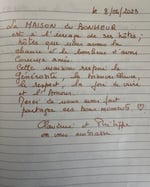 le 8/05/2023
La MAISON du BONHEUR
est à l'image de ses hôtes;
hôtes que nous avons la
chance et le bonheur d'avoir
Cette maison respire la
Générosité, la Bienveillance,
le respect, la joie de vivre
et l'Amour.
Merci de nous avoir fait
partager ces bons moments ♡
Christine et Philippe